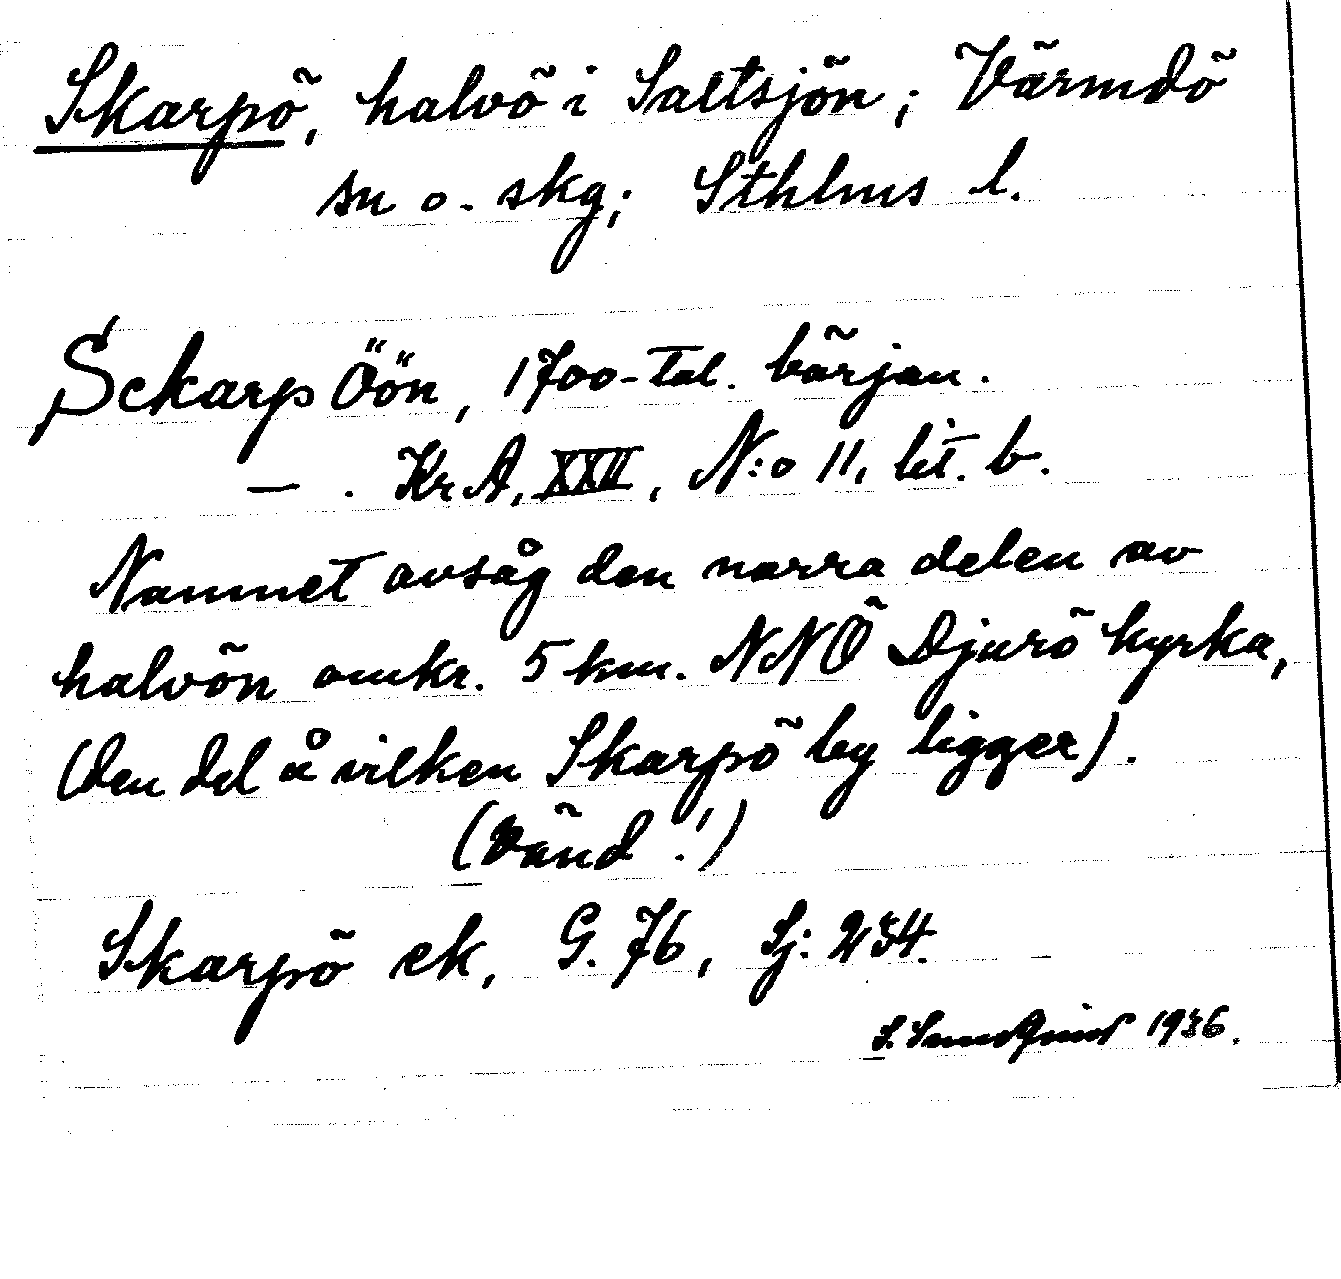 Skarpö, halvö i Saltsjön; Värmdö
sn o. skg; Sthlms l.
Sckarp Öön, 1700-tal. början.
— . Kr A, XXII, N:o 11, lit. b.
Namnet avsåg den norra delen av
halvön omkr. 5 km. NNÖ Djurö kyrka,
(den del å vilken Skarpö by ligger).
(Vänd!)
Skarpö ek, G. 76, Sj: 234.
S. Sundquist 1936.